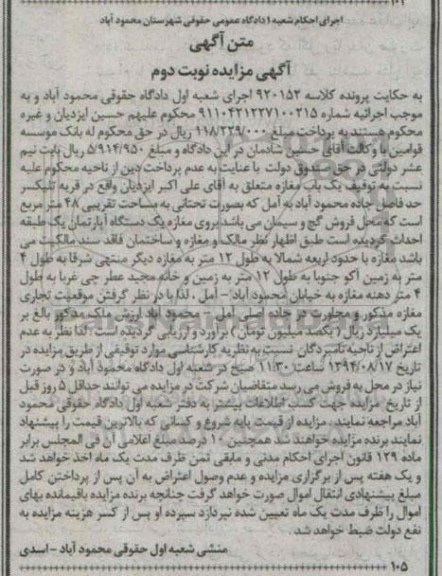 اجرای احکام شعبه ۱ دادگاه عمومی حقوقی شهرستان محمود آباد
متن آگهی
آگهی مزایده نوبت دوم
به حکایت پرونده کلاسه ۹۲۰۱۵۲ اجرای شعبه اول دادگاه حقوقی محمود آباد و به
موجب اجرائیه شماره ۹۱۱۰۴۲۱۲۲۷۱۰۰۲۱۵ محکوم علیهم حسین ایزدیان و غیره
محکوم هستند به پرداخت مبلغ ۱۱۸/۲۲۹/۰۰۰ ریال در حق محکوم له بانک موسسه
قوامین با وکالت آقای حسین شادمان در این دادگاه و مبلغ ۵/۹۱۴/۹۵۰ ریال بابت نیم
عشر دولتی در حق صندوق دولت با عنایت به عدم پرداخت دین از ناحیه محکوم علیه
نسبت به توقیف یک باب مغازه متعلق به آقای علی اکبر ایزدیان واقع در قریه تلیکسر
حد فاصل جاده محمود آباد به آمل که بصورت تحتانی به مساحت تقریبی ۴۸ متر مربع
است که محل فروش گچ و سیمان می باشد بروی مغازه یک دستگاه آپارتمان یک طبقه
احداث گردیده است طبق اظهار نظر مالک و مغازه و ساختمان فاقد سند مالکیت می
باشد مغازه با حدود اربعه شمالا به طول ۱۲ متر به مغازه دیگر منتهی شرقا به طول ۴
متر به زمین آکو جنوبا به طول ۱۲ متر به زمین و خانه مجید عطر چی غربا به طول
۴ متر دهنه مغازه به خیابان محمود آباد - آمل ، لذا با در نظر گرفتن موقعیت تجاری
مغازه مذکور و مجاورت در جاده اصلی آمل - محمود آباد ارزش ملک مذکور بالغ بر
یک میلیارد ریال ( یکصد میلیون تومان ) برآورد و ارزیابی گردیده است . لذا نظر به عدم
اعتراض از ناحیه نامبردگان نسبت به نظریه کارشناسی موارد توقیفی از طریق مزایده در
تاریخ ۱۳۹۴/۰۸/۱۷ ساعت ۱۱:۳۰ صبح در شعبه اول دادگاه محمود آباد و در صورت
نیاز در محل به فروش می رسد متقاضیان شرکت در مزایده می توانند حداقل ۵ روز قبل
از تاریخ مزایده جهت کسب اطلاعات بیشتر به دفتر شعبه اول دادگاه حقوقی محمود
آباد مراجعه نمایند. مزایده از قیمت پایه شروع و کسانی که بالاترین قیمت را پیشنهاد
نمایند برنده مزایده خواهند شد همچنین ۱۰ درصد مبلغ اعلامی آن فی المجلس برابر
ماده ۱۲۹ قانون اجرای احکام مدنی و مابقی ثمن ظرف مدت یک ماه اخذ خواهد شد
و یک هفته پس از برگزاری مزایده و عدم وصول اعتراض به آن پس از پرداختن کامل
مبلغ پیشنهادی انتقال اموال صورت خواهد گرفت چنانچه برنده مزایده باقیمانده بهای
اموال را ظرف مدت یک ماه تعیین شده نپردازد سپرده او پس از کسر هزینه مزایده به
نفع دولت ضبط خواهد شد .
منشی شعبه اول حقوقی محمود آباد - اسدی
۱۰۵